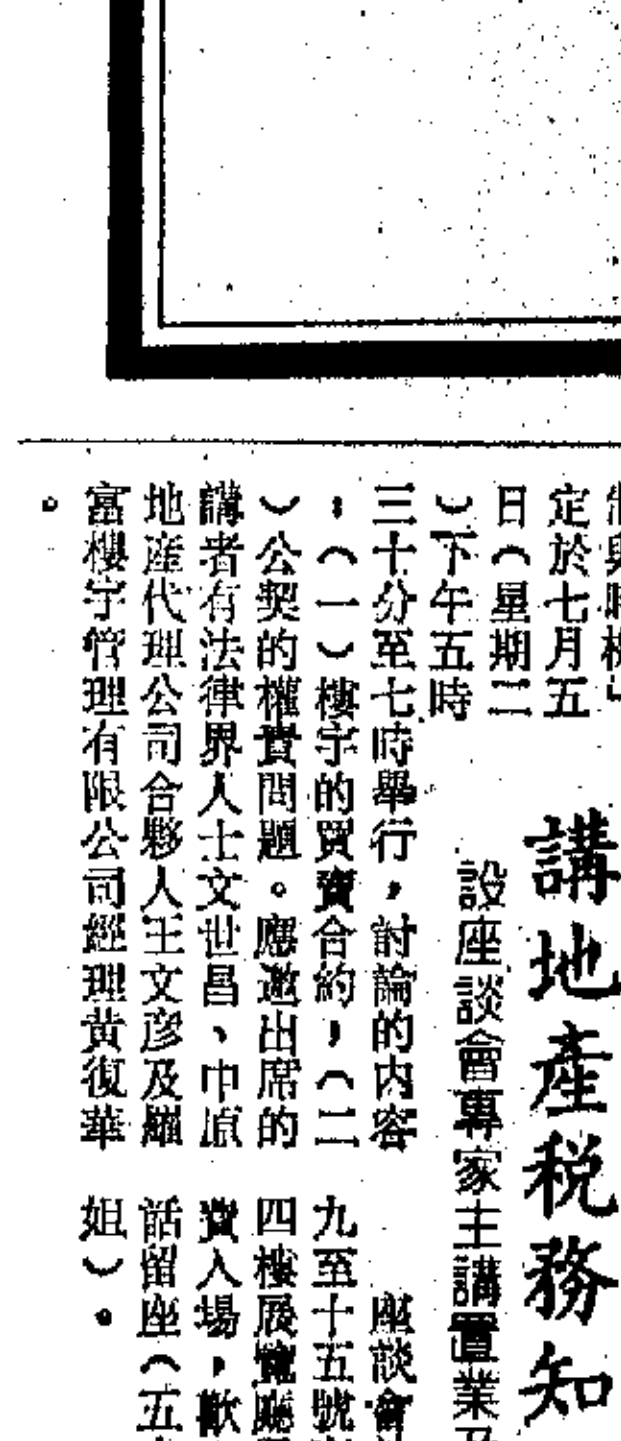 講地產税務知
設座談會專家主講置業及
定於七月五
日（星期二
）下午五時
三十分至七時舉行，討論的内容
：（一）樓宇的買賣合約，（二
）公契的權責問題。應邀出席的
講者有法律界人士文世昌、中原
地產代理公司合夥人王文彦及羅
富樓宇管理有限公司經理黄復華
。
座談會
九至十五號
四樓展覽廳
費入場，歡
話留座（五
姐）。